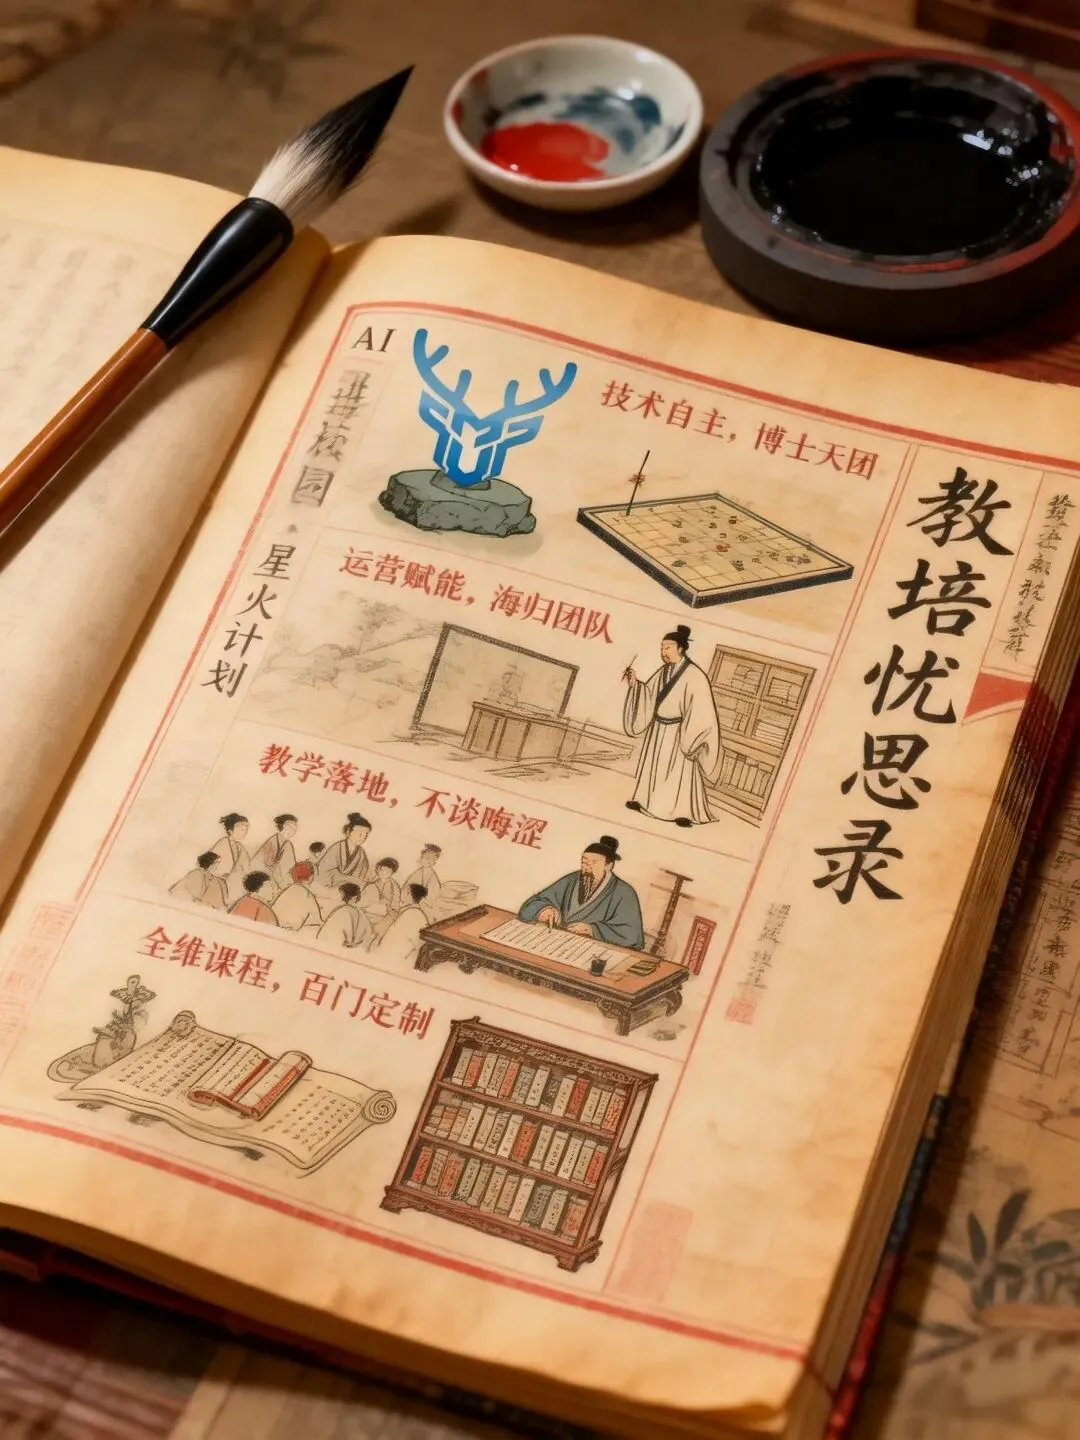 教培忧思录
技术自主，博士天团
运营赋能，海归团队
教学落地，不谈晦涩
全维课程，百门定制
AI
进校园·星火计划